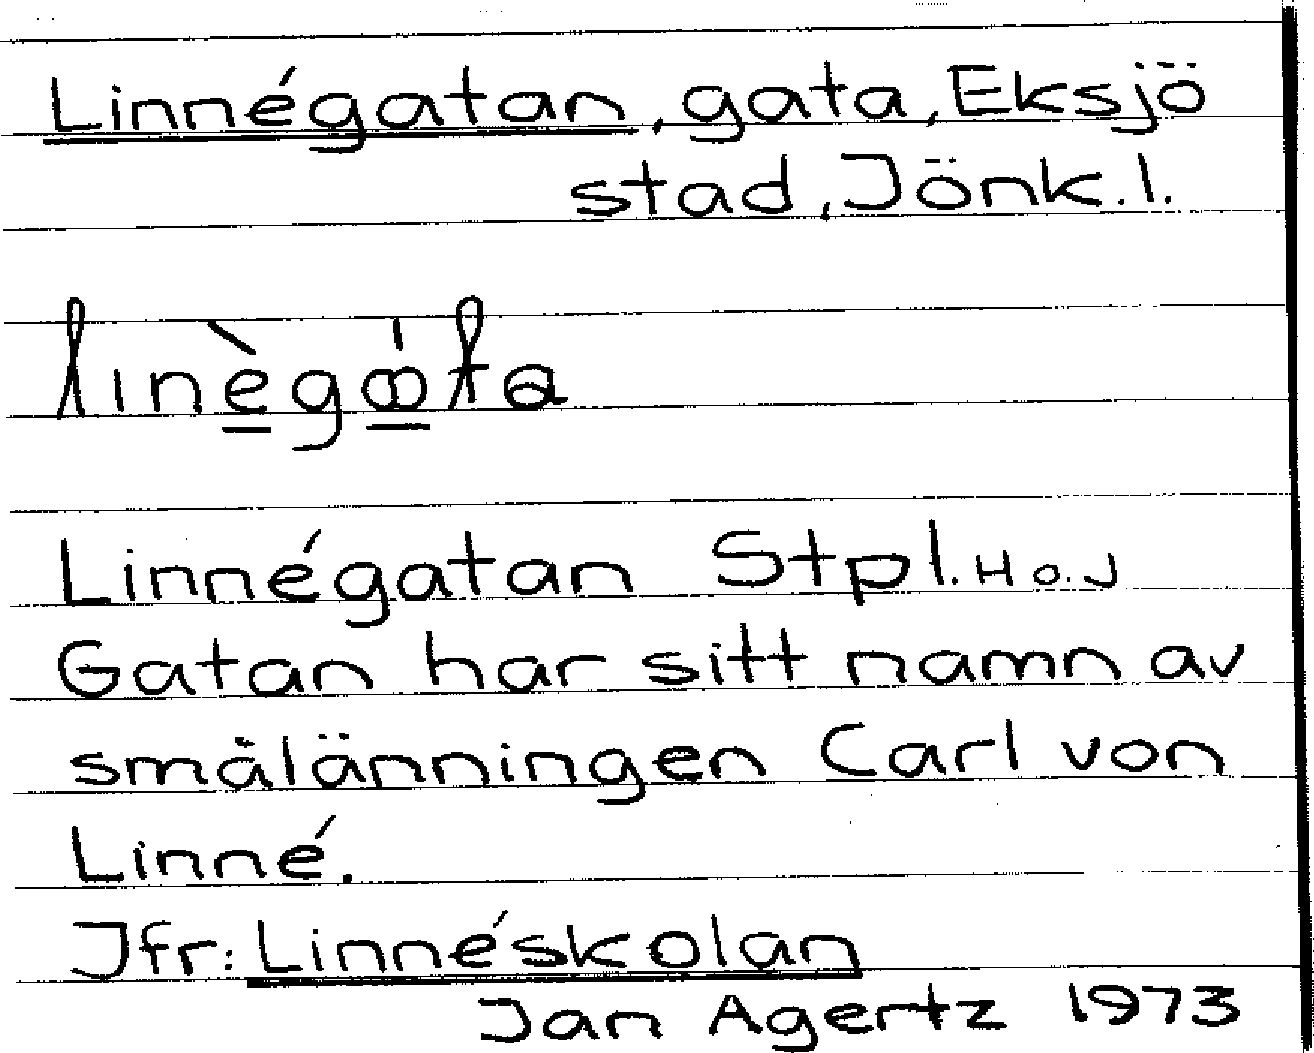 Linnégatan, gata, Eksjö
stad, Jönk. l.
Linnégatan Stpl. H o. J
Gatan har sitt namn av
smålänningen Carl von
Linné.
Jfr: Linnéskolan
Jan Agertz 1973